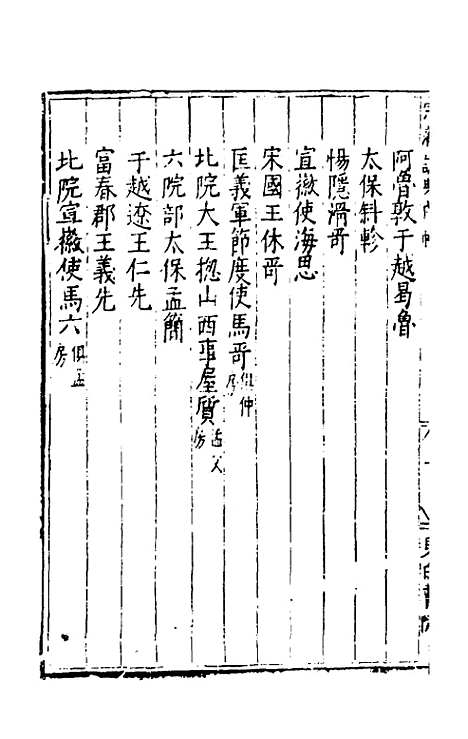 阿魯敦于越曷魯
太保斜軫
惕隱滑哥
宣徽使海思
宋國王休哥
匡義軍節度使馬哥俱仲房
北院大王揔山西事屋質季父房
六院部太保孟簡
于越遼王仁先
富春郡王義先
北院宣徽使馬六俱孟房